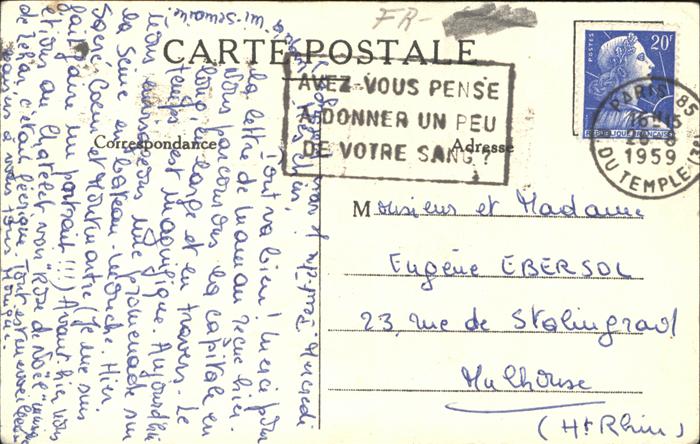 FR-
CARTE POSTALE
AVEZ-VOUS PENSÉ
A DONNER UN PEU
DE VOTRE SANG?
Correspondance
Adresse
POSTES
20F
REPUBLIQUE FRANÇAISE
PARIS
1959
DU TEMPLE
Monsieur et Madame
Eugène EBERSOL
23, rue de Stalingrad
Mulhouse
(Ht Rhin)
Mercredi
Tout va bien! Merci pour
la lettre de maman reçue hier.
Nous parcourons la capitale en
long, en large et en travers. Le
temps est magnifique. Aujourd'hui
nous envisageons une promenade sur
la Seine en bateau-mouche. Hier
Sacré Coeur et Montmartre (Je me suis
fait faire un portrait!!!) Avant hier, nous
étions au Chatelet, voir "Rose de Noël"
de Lehar, c'était féerique. Tout est merveilleux
à vous tous
Monique.
mi-semaine